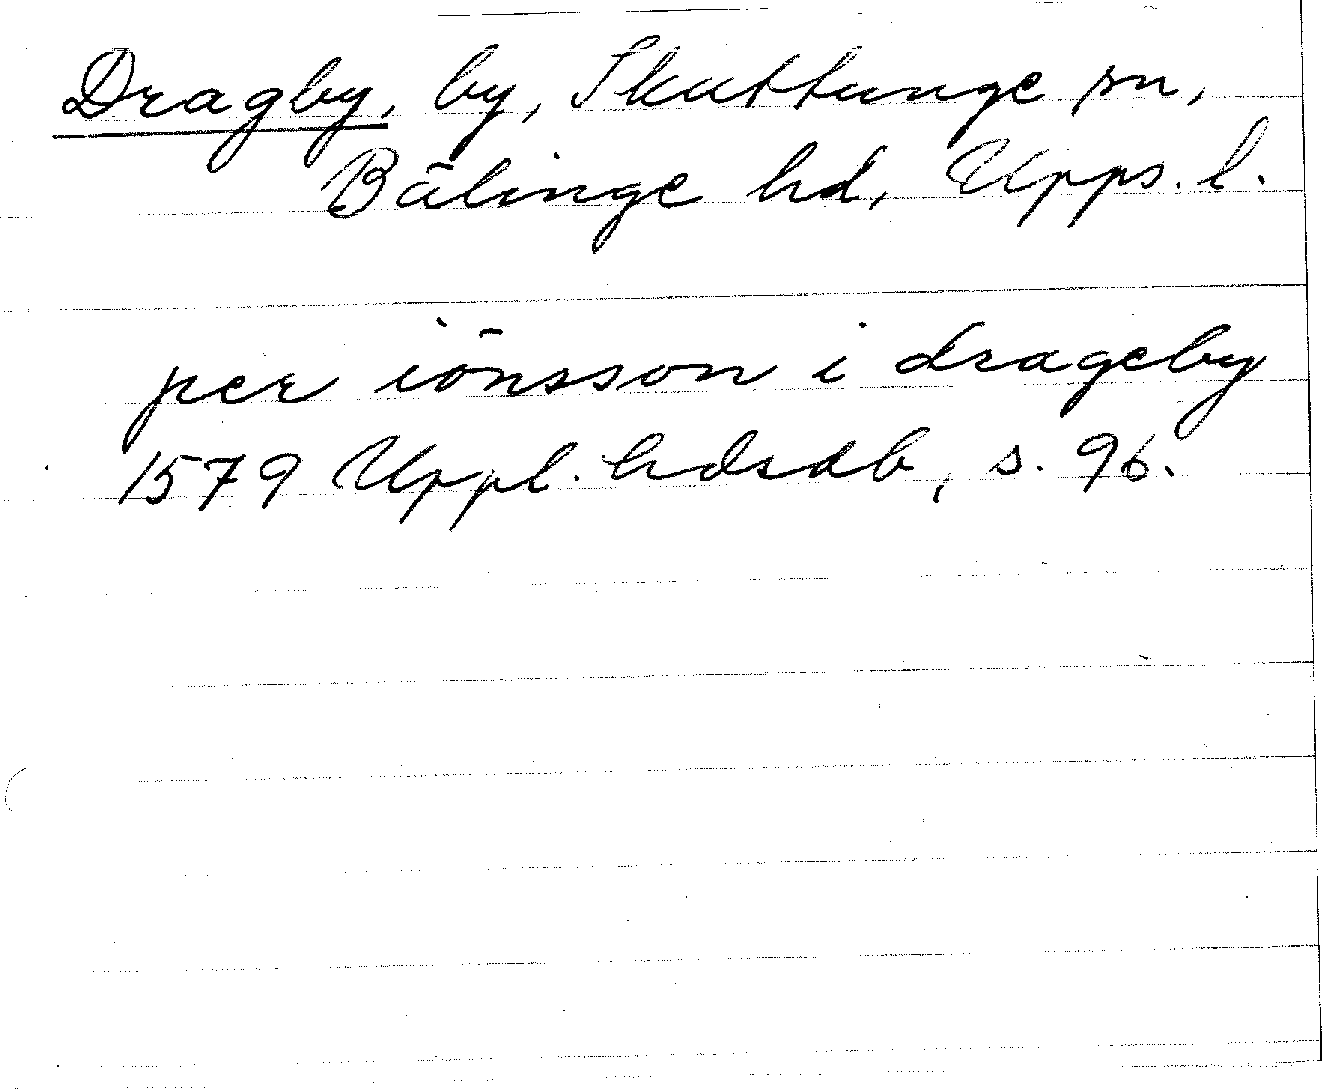 Dragby, by, Skuttunge sn,
Bälinge hd, Upps. l.
per iönsson i drageby
1579 Uppl. hdsdb, s. 96.